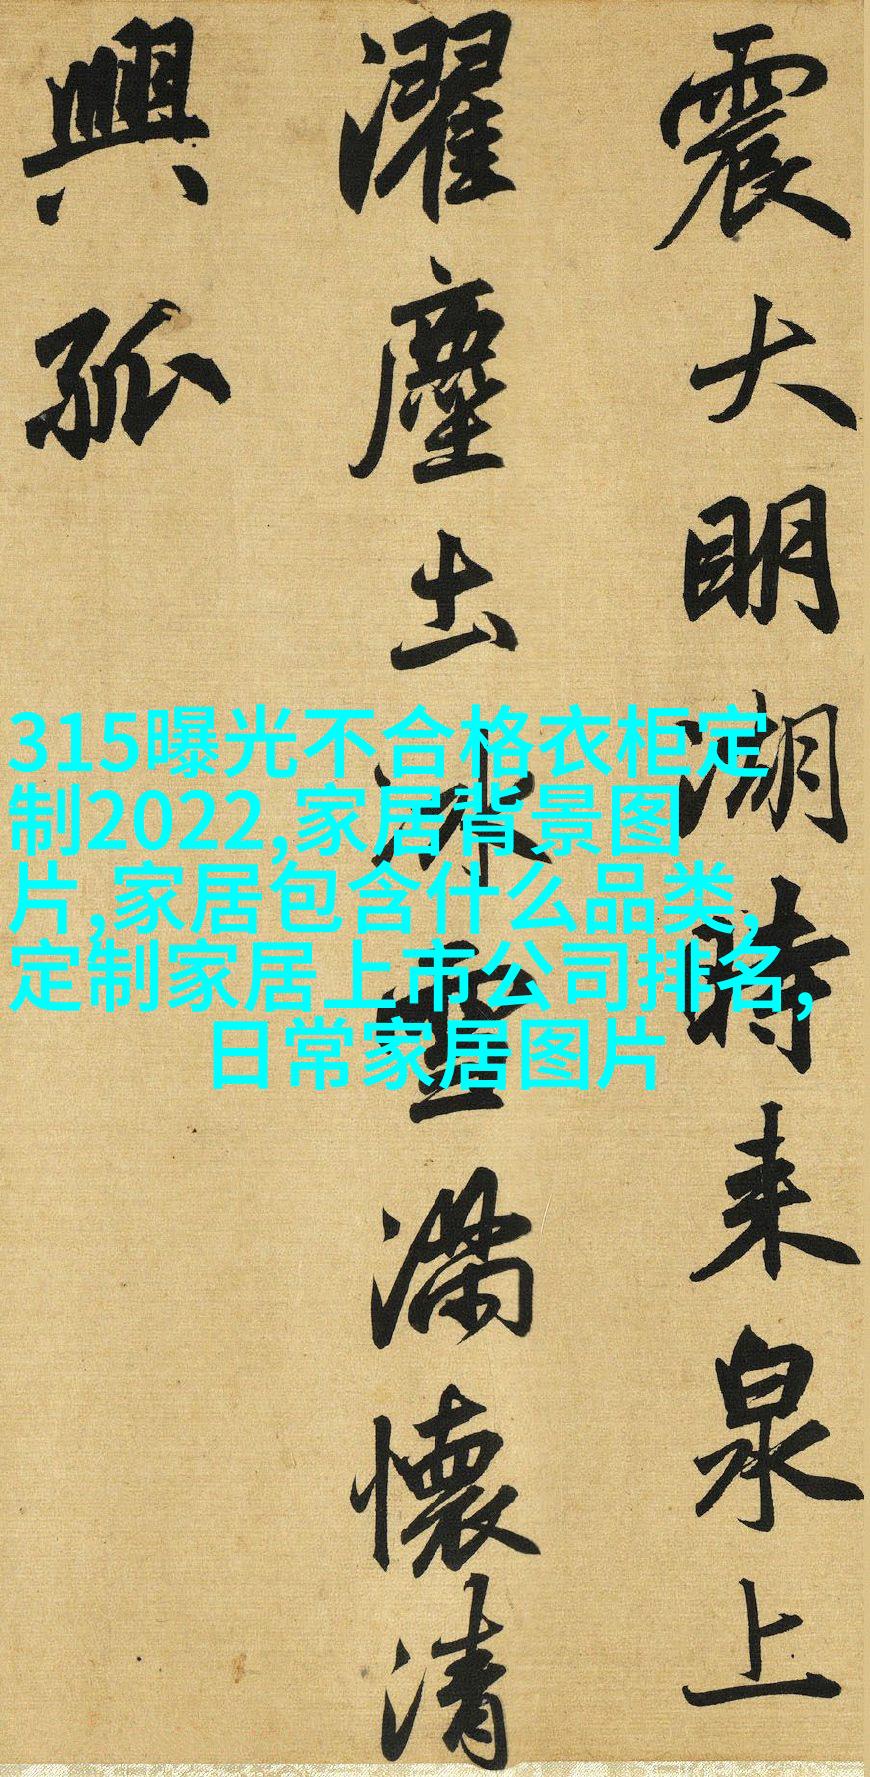 震大明湖時来泉上
濯塵出冰雪滿懷清
興孤
315曝光不合格衣柜定
制2022,家居背景图
片,家居包含什么品类,
定制家居上市公司排名,
日常家居图片